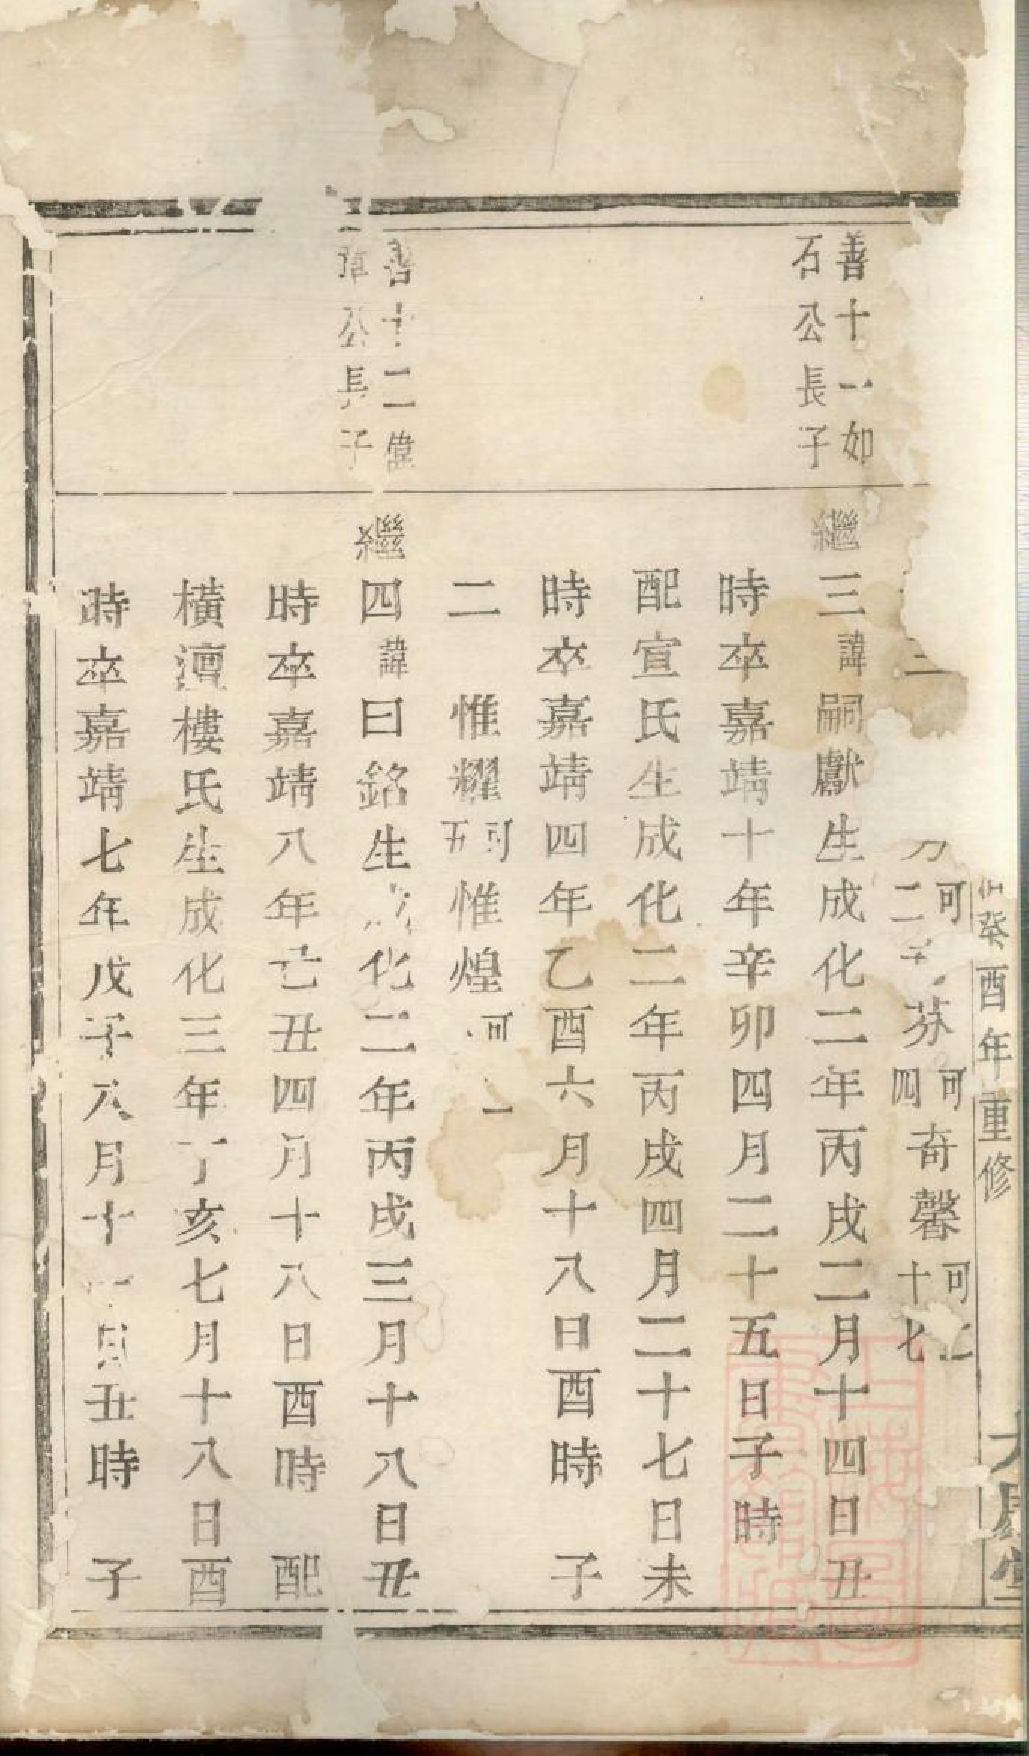 癸酉年重修
二 可二 芬可四 奇馨可十七
善十一如
石公長子
繼三諱嗣獻生成化二年丙戌二月十四日丑
時卒嘉靖十年辛卯四月二十五日子時
配宣氏生成化二年丙戌四月二十七日未
時卒嘉靖四年乙酉六月十八日酉時 子
二 惟耀可五惟煌可一
善十二偉
公長子
繼四諱曰銘生成化二年丙戌三月十八日丑
時卒嘉靖八年己丑四月十八日酉時 配
橫澶樓氏生成化三年丁亥七月十八日酉
時卒嘉靖七年戊子八月十一日丑時 子